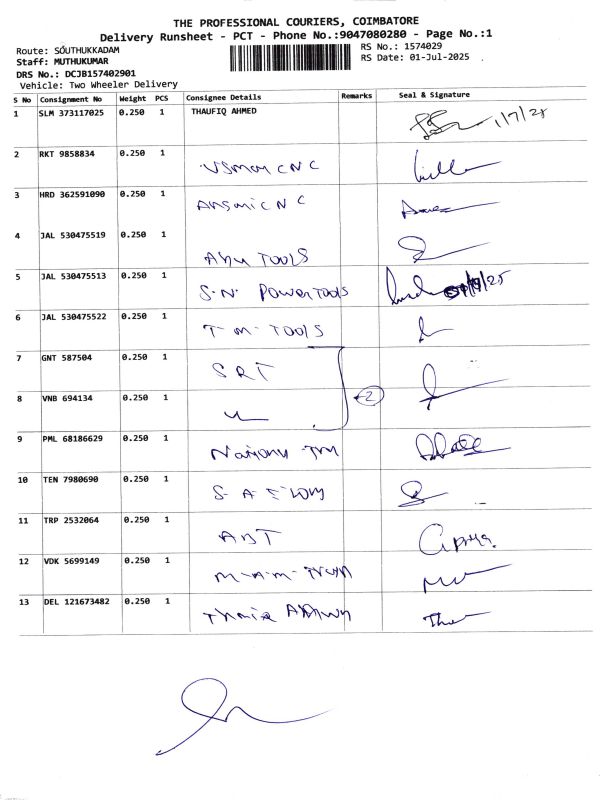 THE PROFESSIONAL COURIERS, COIMBATORE
Delivery Runsheet - PCT - Phone No.:9047080280 - Page No.:1
Route: SOUTHUKKADAM
RS No.: 1574029
Staff: MUTHUKUMAR
RS Date: 01-Jul-2025
DRS No.: DCJB157402901
Vehicle: Two Wheeler Delivery
S No Consignment No Weight PCS Consignee Details Remarks Seal & Signature
1 SLM 373117025 0.250 1 THAUFIQ AHMED 1/7/25
2 RKT 9858834 0.250 1 CNC
3 HRD 362591090 0.250 1 CNC
4 JAL 530475519 0.250 1 TOOLS
5 JAL 530475513 0.250 1 S.N. POWERTOOLS
6 JAL 530475522 0.250 1 T-M-TOOLS
7 GNT 587504 0.250 1 SRT
2
8 VNB 694134 0.250 1
9 PML 68186629 0.250 1
10 TEN 7980690 0.250 1 S-A-
11 TRP 2532064 0.250 1 ABT
12 VDK 5699149 0.250 1 M-A-M-
13 DEL 121673482 0.250 1